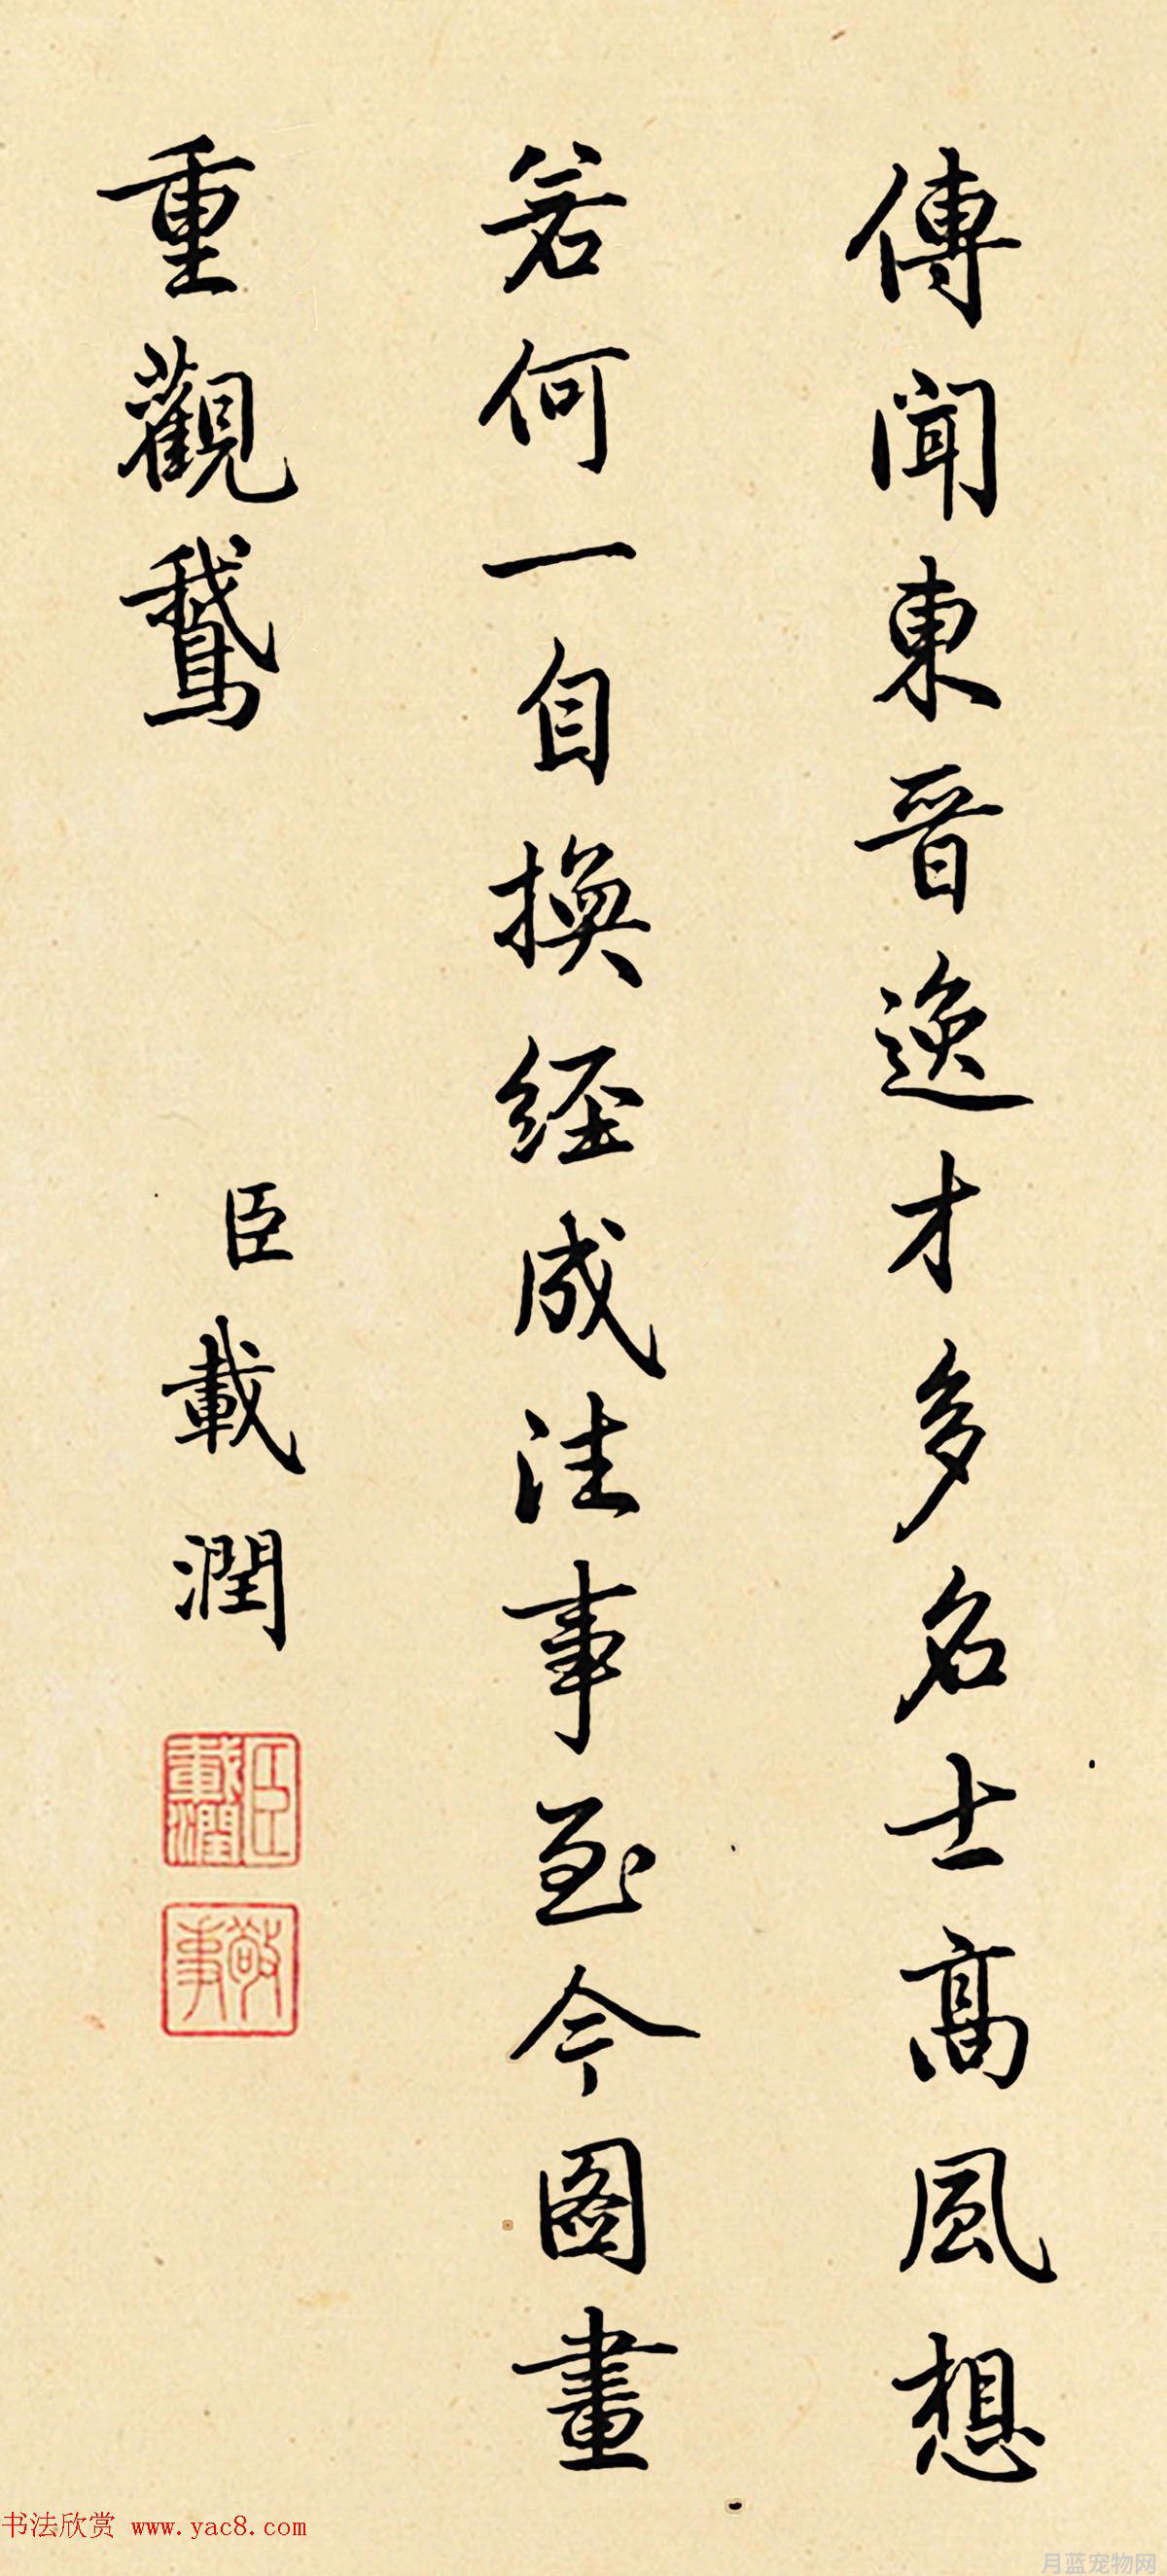 傳聞東晉逸才多名士高風想
若何一自換經成往事至今圖畫
重觀鵞
臣載潤
臣載潤
敬事
书法欣赏 www.yac8.com
月蓝宠物网